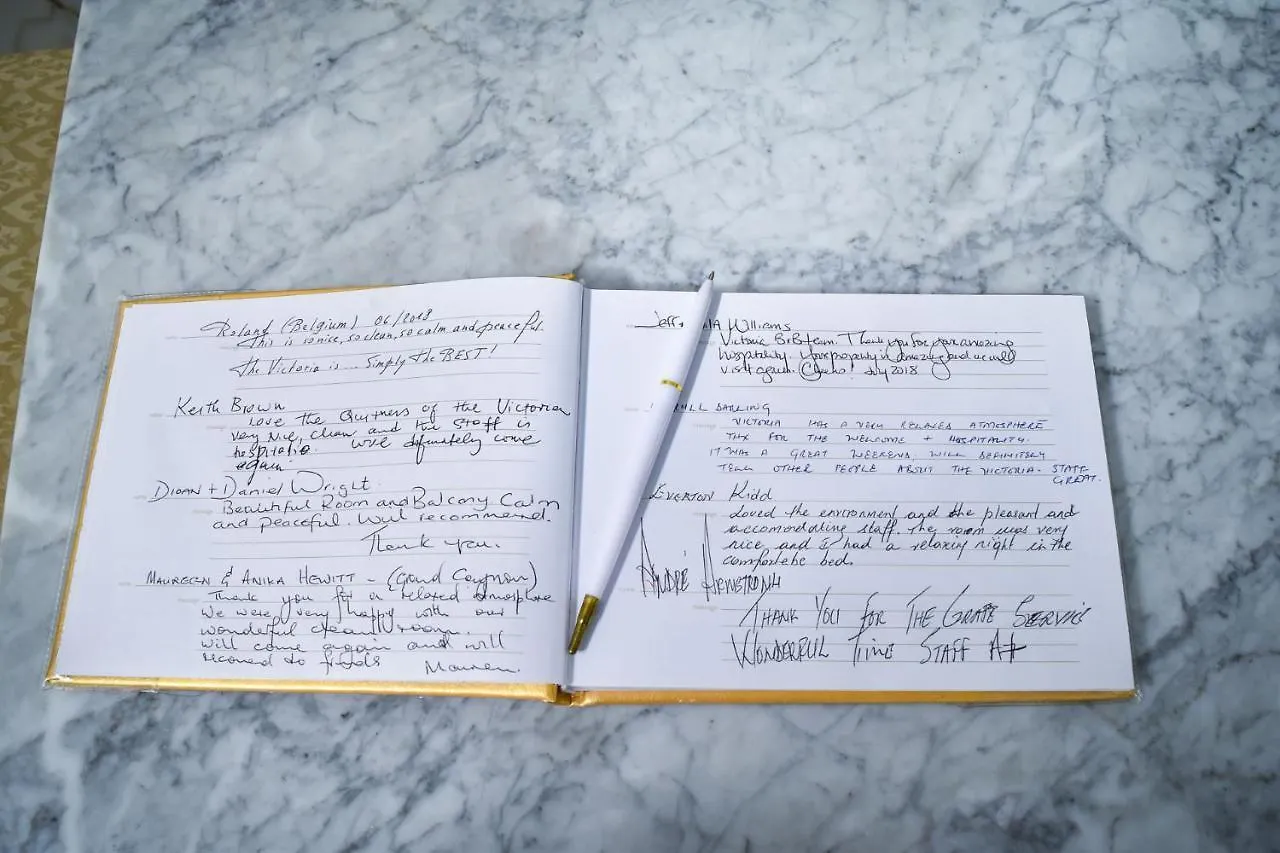 Roland (Belgium) 06/2018
This is so nice, so clean, so calm and peaceful.
The Victoria is... Simply the BEST!
Keith Brown
Love the Quitness of the Victoria
very nice, clean, and the staff is
hospitable. Will definately come
again
Dioan + Daniel Wright.
Beautiful Room and Balcony. Calm
and peaceful. Well recommend.
Thank you.
MAUREEN & ANIKA HEWITT - (Grand Cayman)
Thank you for a relaxed atmosphere
We were very happy with our
wonderful clean room.
will come again and will
to Maureen.
Williams
Victoria B&B team. Thank you for your amazing
hospitality. Your property is amazing and we will
visit again. Cheers! July 2018
DARLING
VICTORIA HAS A VERY RELAXED ATMOSPHERE
THX FOR THE WELCOME + HOSPITALITY.
IT WAS A GREAT WEEKEND. WILL DEFINITELY
TELL OTHER PEOPLE ABOUT THE VICTORIA. STAFF
GREAT.
EVERTON Kidd
Loved the environment and the pleasant and
accomodating staff. The room was very
nice and I had a relaxing night in the
comfortable bed.
ANDRÉ ARMSTRONG
THANK YOU FOR THE GRATE SERVICE
WONDERFUL TIME STAFF A+